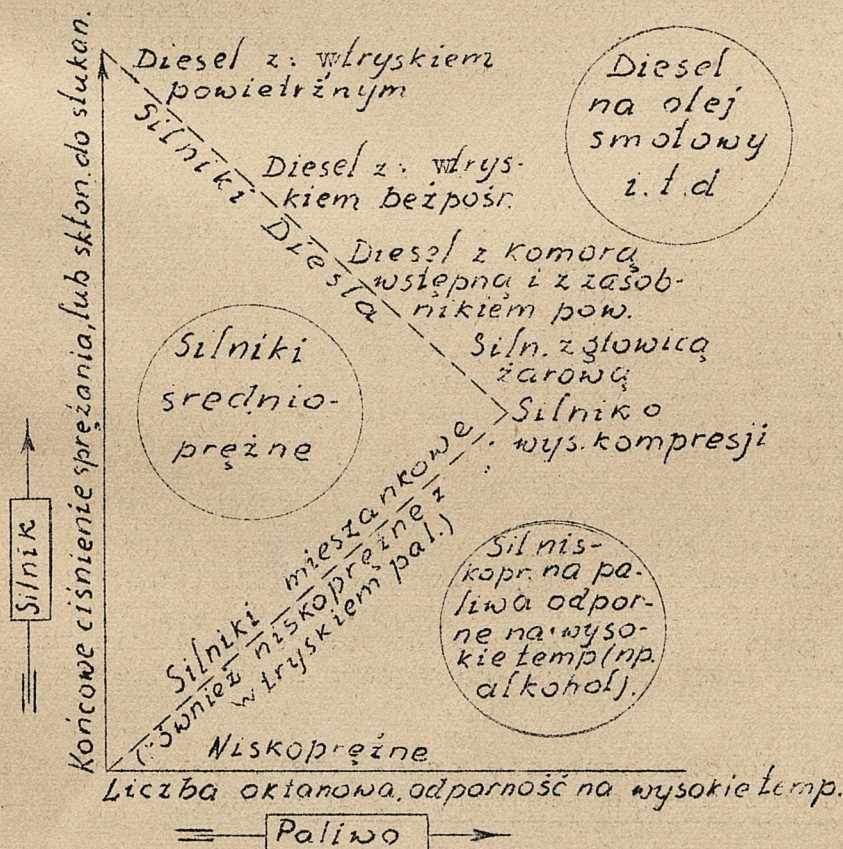 Końcowe ciśnienie sprężania, lub skłon. do stukan.
Silnik
Diesel z. wtryskiem
powietrznym
Diesel
na olej
smołowy
i.t.d
Silniki Diesla
Diesel z. wtrys-
kiem beżpośr.
Diesel z komorą
wstępną i z zasob-
nikiem pow.
Siln. z głowicą
żarową
Silnik o
wys. kompresji
Silniki
srednio-
prężne
Silniki mieszankowe
(również niskoprężne z
wtryskiem pal.)
Sil nis-
kopr. na pa-
liwa odpor-
ne na wyso-
kie temp (np.
alkohol).
Niskoprężne
Liczba oktanowa, odporność na wysokie temp.
Paliwo